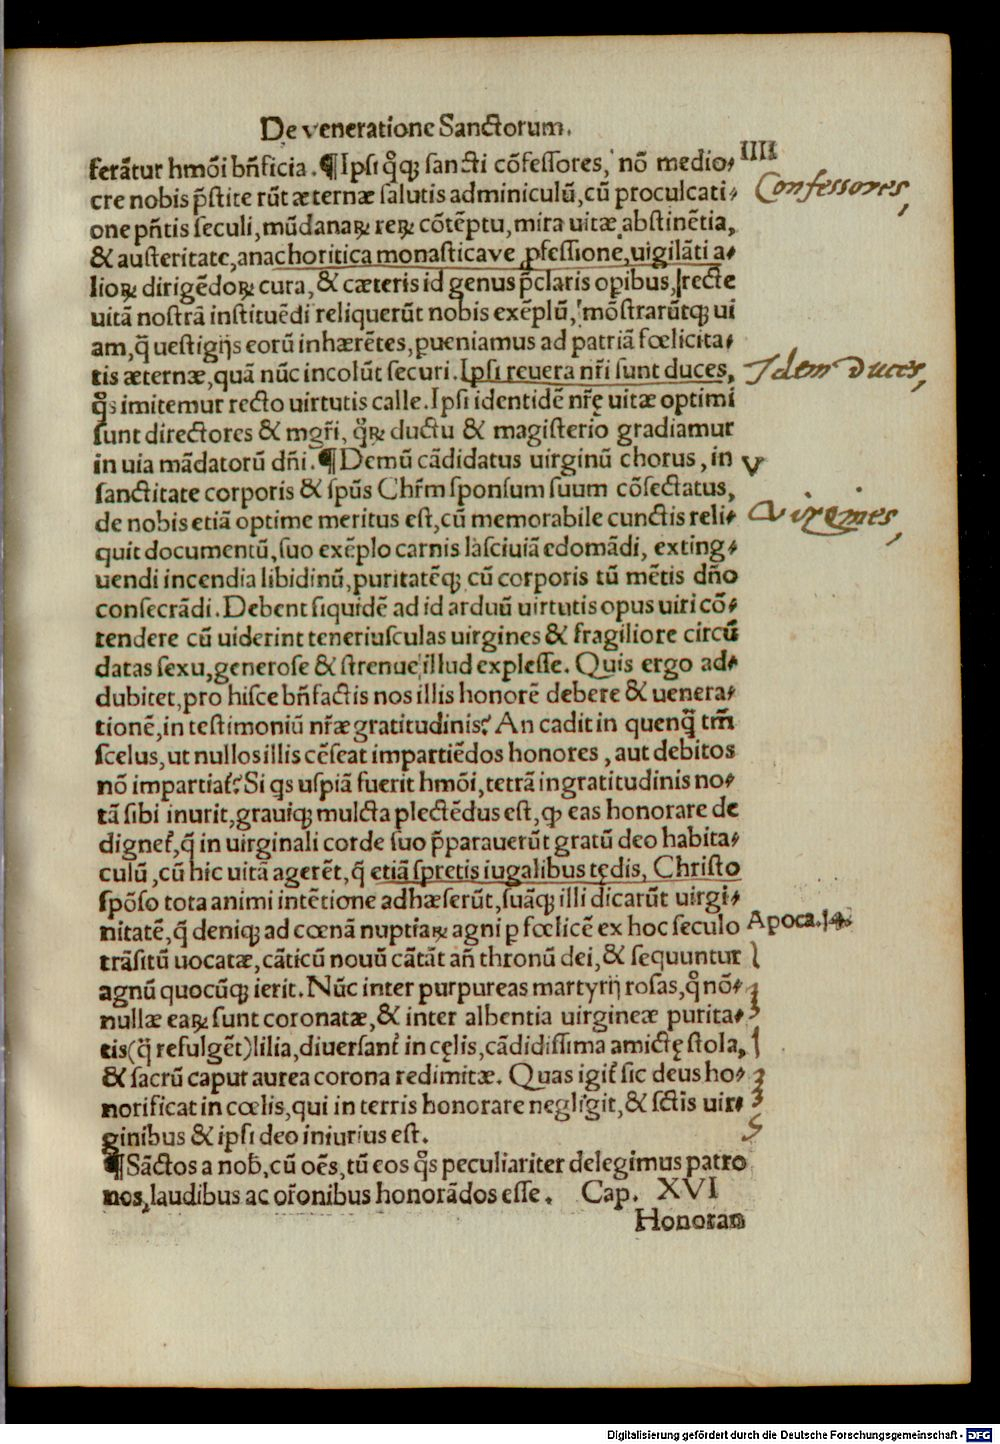 De veneratione Sanctorum.
ferãtur hmõi bñficia. ¶ Ipsi qͦqꝫ sancti cõfessores, nõ medio⸗ IIII
cre nobis p̃stite rũt æternæ salutis adminiculũ, cũ proculcati⸗ Confessores,
one pñtis seculi, mũdanaꝝ reꝝ cõtẽptu, mira uitæ abstinẽtia,
& austeritate, anachoritica monasticave ꝓfessione, uigilãti a⸗
lioꝝ dirigẽdoꝝ cura, & cæteris id genus p̃claris opibus, recte
uitã nostrã instituẽdi reliquerũt nobis exẽplũ, mõstrarũtqꝫ ui
am, q̃ uestigijs eorũ inhærẽtes, ꝑueniamus ad patriã fœlicita⸗
tis æternæ, quã nũc incolũt securi. Ipsi reuera nr̃i sunt duces, Idem Duces,
qͦs imitemur recto uirtutis calle. Ipsi identidẽ nr̃ę uitæ optimi
sunt directores & mgr̃i, qͦꝝ ductu & magisterio gradiamur
in uia mãdatorũ dñi. ¶ Demũ cãdidatus uirginũ chorus, in V
sanctitate corporis & spũs Chr̃m sponsum suum cõsectatus,
de nobis etiã optime meritus est, cũ memorabile cunctis reli⸗ Virgines,
quit documentũ, suo exẽplo carnis lasciuiã edomãdi, exting⸗
uendi incendia libidinũ, puritatẽqꝫ cũ corporis tũ mẽtis dño
consecrãdi. Debent siquidẽ ad id arduũ uirtutis opus uiri cõ⸗
tendere cũ uiderint teneriusculas uirgines & fragiliore circũ
datas sexu, generose & strenue illud explesse. Quis ergo ad⸗
dubitet, pro hisce bñfactis nos illis honorẽ debere & uenera⸗
tionẽ, in testimoniũ nr̃æ gratitudinis? An cadit in quenq̃ tm̃
scelus, ut nullos illis cẽseat impartiẽdos honores, aut debitos
nõ impartiat̃? Si qs uspiã fuerit hmõi, tetrã ingratitudinis no⸗
tã sibi inurit, grauiqꝫ mulcta plectẽdus est, ꝙ eas honorare de
dignet̃, q̃ in uirginali corde suo p̃parauerũt gratũ deo habita⸗
culũ, cũ hic uitã agerẽt, q̃ etiã spretis iugalibus tędis, Christo
spõso tota animi intẽtione adhæserũt, suãqꝫ illi dicarũt uirgi⸗
nitatẽ, q̃ deniqꝫ ad cœnã nuptiaꝝ agni ꝑ fœlicẽ ex hoc seculo Apoca. 14.
trãsitũ uocatæ, cãticũ nouũ cãtãt añ thronũ dei, & sequuntur
agnũ quocũqꝫ ierit. Nũc inter purpureas martyrij rosas, qͦ nõ⸗
nullæ eaꝝ sunt coronatæ, & inter albentia uirgineæ purita⸗
tis (q̃ refulgẽt) lilia, diuersant̃ in cęlis, cãdidissima amictę stola,
& sacrũ caput aurea corona redimitæ. Quas igit̃ sic deus ho⸗
norificat in cœlis, qui in terris honorare negligit, & sctĩs uir⸗
ginibus & ipsi deo iniurius est.
¶ Sãctos a nob̃, cũ oẽs, tũ eos qͦs peculiariter delegimus patro
nos, laudibus ac or̃onibus honorãdos esse. Cap. XVI
Honoran
Digitalisierung gefördert durch die Deutsche Forschungsgemeinschaft - DFG